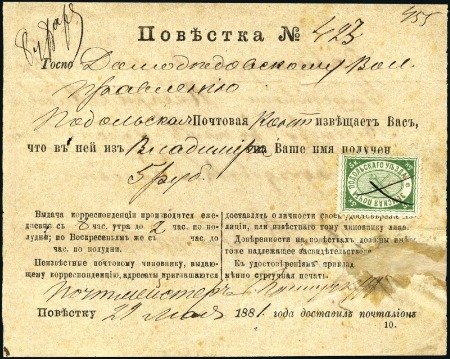 455
Повѣстка № 423
Госпо Домодѣдовскому Вол.
Правленію
Подольская Почтовая Конт извѣщаетъ Васъ,
что въ ней изъ Владимира на Ваше имя получен
5 руб.
ПОДОЛЬСКАГО УѢЗДА
СКАЯ ПОЧТА
Выдача корреспонденціи производится еже-
дневно съ 8 час. утра до 2 час. по по-
лудни; по Воскресеньямъ же съ час. до
час. по полудни.
Неизвѣстные почтовому чиновнику, выдаю-
щему корреспонденцію, адресаты приглашаются
доставлять о личности своей
лиціи, или извѣстнаго тому чиновнику лица.
Довѣренности на повѣсткахъ должны имѣть
тое надлежащее засвидѣтельство
Къ удостовѣреніямъ
мѣнно сургучная печать.
Почтмейстеръ
Повѣстку 29 Мая 1881 года доставилъ почталіонъ
10.